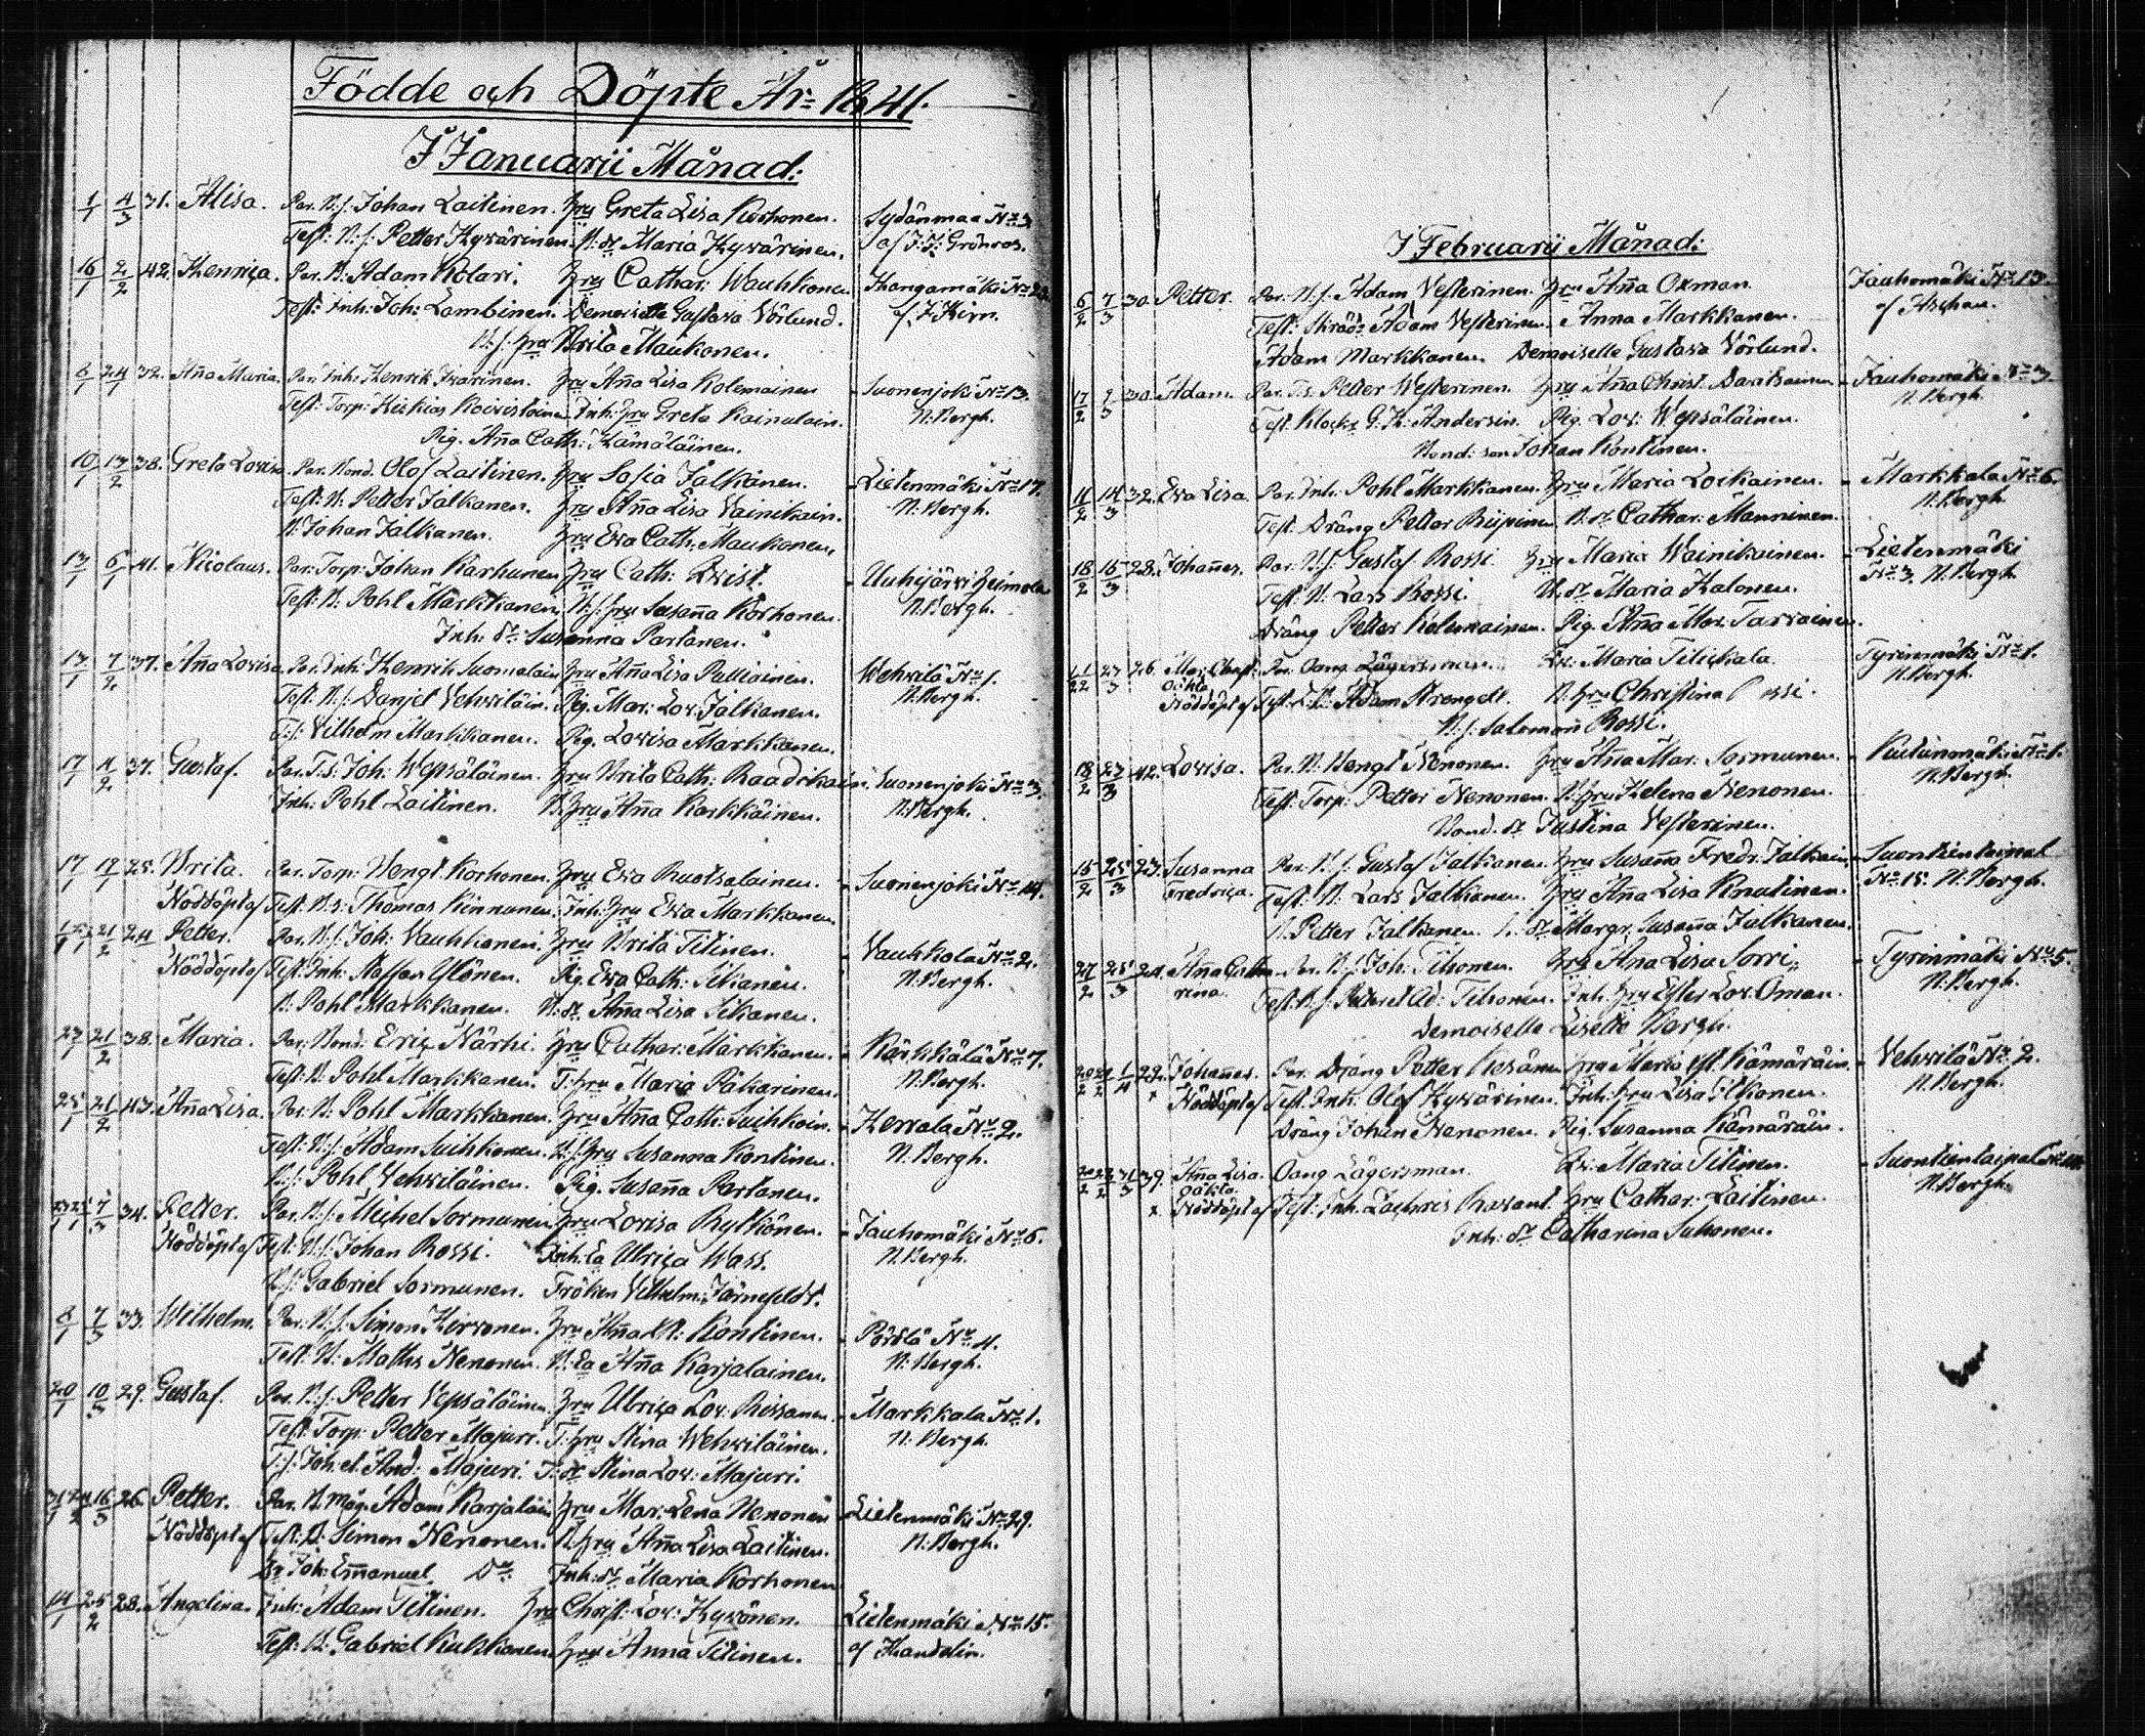 Födde och Döpte År 1841.
I Januarii Månad:
1/1 4/3 31. Alisa. Par. B.s. Johan Laitinen. Hru Greta Lisa Korhonen. Sydänmaa No 3
Test: B.s: Petter Hyvärinen. B: dr Maria Hyvärinen. af J: F: Grönros.
16/1 2/2 42. Henrica. Par. B: Adam Kolari. Hru Cathar: Wauhkonen Kangamäki No
Test: Inh: Joh: Lambinen. Demoiselle Gustava Vörlund. af Hirn.
B.s: hru Brita Maukonen.
8/1 24/1 32. Aña Maria. Par. Inh: Henrik Ikärinen. Hru Aña Lisa Kolemainen Suonenjoki No 13.
Test: Torp: Hiskias Koivistoinen Inh: hru Greta Kainulain. N: Bergh.
Pig. Aña Cath: Hämäläinen.
10/1 13/2 38. Greta Lovisa Par. Bond. Olof Laitinen. Hru Sofia Jalkanen. Lietenmäki No 17.
Test: B. Petter Jalkanen. Hru Aña Lisa Vainikain. N: Bergh.
B: Johan Jalkanen. Hru Eva Cath. Maukonen.
13/1 6/1 41. Nicolaus. Par: Torp: Johan Karhunen Hru Cath: Qvist. Uuhijärvi
Test: B. Pohl Markkanen B.s: hru Susaña Korhonen. N: Bergh.
Inh: dr Susanna Partanen.
13/1 7/2 37. Aña Lovisa Par. Inh: Henrik Suomalain Hru Aña Lisa Pulliainen. Wehvilä No 1.
Test. B.s: Danjel Vehviläin. Pig. Mar: Lov: Jalkanen. N: Bergh.
T:s: Vilhelm Markkanen. Pig. Lovisa Markkanen.
17/1 11/2 37. Gustaf. Par. T.s: Joh: Wepsäläinen. Hru Brita Cath: Raadikain. Suonenjoki No 3.
Inh: Pohl Laitinen. B. hru Aña Karkkäinen. N: Bergh.
17/1 25. Brita. Par. Torp: Bengt Korhonen. Hru Eva Ruotsalainen. Suonenjoki No 14.
Nöddöpt af Test: B.s: Thomas Kinnunen. Inh: hru Eva Markkanen.
21/2 24 Petter. Par. B.s: Joh: Vauhkonen. Hru Brita Titinen. Vauhkola No 2.
Nöddöpt af Test: Inh: Staffan Ylönen. Pig. Eva Cath: Sikanen. N: Bergh.
B: Pohl Markkanen. B: dr Aña Lisa Sikanen.
21/2 38. Maria. Par. Bond: Eric Närhi. Hru Cathar: Markkanen. Kärkkälä No 7.
Test: B. Pohl Markkanen. T: hru Maria Pakarinen. N: Bergh.
25/1 21/2 43. Aña Lisa. Par. B: Pohl Markkanen. Hru Aña Cath: Suihkoin. Hervala No 2.
Test: B.s: Adam Suihkonen. B.s: hru Susanna Kontinen. N: Bergh.
B.s: Pohl Vehviläinen. Pig. Susaña Partanen.
7/3 34. Petter. Par. B.s: Michel Sormunen Hru Lovisa Rytkönen. Jauhomäki No 6.
Nöddöpt af Test: B.s: Johan Rossi. Inh: Ea Ulrica Wass. N: Bergh.
B.s: Gabriel Sormunen. Fröken Vilhelm: Järnefeldt.
8/1 7/3 33. Wilhelm. Par. B.s: Simon Hirvonen. Hru Kontinen. Pörölä No 4.
Test: B: Maths Nenonen. B: Ea Aña Karjalainen. N: Bergh.
20/1 10/3 29. Gustaf. Par. B.s: Petter Vepsäläinen. Hru Ulrica Lov: Rissanen. Markkala No 1.
Test: Torp: Petter Majuri. T: hru Stina Wehviläinen. N: Bergh.
T:s: Joh: et And: Majuri. T: dr Stina Lov: Majuri.
16/3 26. Petter. Par. B. måg. Adam Karjaläin Hru Mar: Lena Nenonen Lietenmäki No 29.
Nöddöpt af Test: B: Simon Nenonen. B. hru Aña Lisa Laitinen. N: Bergh.
Joh: Emanuel Do Inh: dr Maria Korhonen
14/1 25/2 28. Angelina. Inh: Adam Titinen. Hru Christ: Lov: Hyvönen. Lietenmäki No 15.
Test: B: Gabriel Kukkonen Hru Anna Titinen. af Handolin.
I Februarii Månad:
6/2 7/3 30 Petter. Par. B.s: Adam Vesterinen. Hru Aña Oxman. Jauhomäki No 13.
Test: Skrädd: Adam Vesterinen. Anna Markkanen. af Aschan.
Adam Markkanen. Demoiselle Gustava Vörlund.
17/2 9/3 30 Adam. Par. T.s: Petter Westerinen. Hru Aña Christ. Jauhomäki No 3.
Test. Klock: G. H. Andersin. Pig. Lov: Wepsäläinen. N: Bergh
Bond: son Johan Kontinen.
11/2 14/3 32. Eva Lisa. Par. Inh: Pohl Markkanen. Hru Maria Loikainen. Markkala No 6.
Test. Dräng Petter Riipinen B. dr Cathar: Manninen. N: Bergh
18/2 15/3 28. Johañes. Par. B.s: Gustaf Rossi Hru Maria Wainikainen. Lietenmäki
Test: B. Lars Rossi. B. dr Maria Halonen. No 3. N: Bergh
Dräng Petter Kolemainen. Pig. Aña Mar. Tarvainen.
27/3 26 Mar. Christ: Par. Oang Lägersman. Maria Tilickala. Tyrinmäki No 1.
oäkta N: Bergh.
Nöddöpt af Test. Adam Arengell. B. hru Christina
B.s: Salomoñ Rossi.
18/2 23/3 42. Lovisa. Par. B. Bengt Nenonen. Hru Aña Mar: Sormunen.
Test: Torp: Petter Nenonen. B. hru Helena Nenonen. N: Bergh.
Bond. dr Justina Vesterinen.
15/2 25/3 23. Susanna Par. B.s: Gustaf Jalkanen. Hru Susaña Fredr. Jalkain. Suontientaipal
Fredrica. Test: B. Lars Jalkanen. Hru Aña Lisa Knutinen. No 15. N: Bergh.
B. Petter Jalkanen. dr Margr. Susaña Jalkanen.
27/2 25/3 24. Aña Catha- Par. B.s: Joh: Tihonen. Hru Aña Lisa Sorri. Tyrinmäki No 5.
rina. Test: B.s: Petter et Ad: Tihonen. Inh. hru Ester Lov: Oman. N: Bergh.
Demoiselle Lisette Bargh.
1/4 22. Johañes. Par. Dräng Petter Hru Maria Kämäräin. Vehvilä No 2.
Nöddöpt af Test. Inh: Olof Hyvärinen. Inh: hru Lisa Ilkonen. N: Bergh.
Dräng Johan Nenonen. Pig. Susanna Kämäräin.
39. Aña Lisa. Oang Lägersman. Maria Titinen. Suontientaipal
oäkta N: Bergh
Nöddöpt af Test: Inh. Zachris Hru Cathar: Laitinen.
Inh: dr Catharina Suhonen.